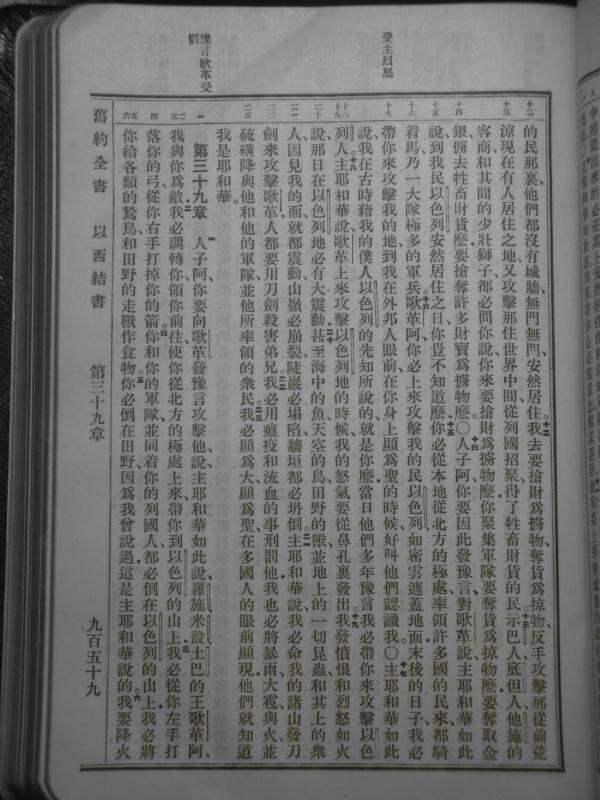 受主烈怒
豫言歌革受罰
十二 的民那裏他們都沒有城牆無門無閂安然居住、十二我去要搶財爲擄物奪貨爲掠物反手攻擊那從前荒
十三 涼現在有人居住之地又攻擊那住世界中間從列國招聚得了牲畜財貨的民、十三示巴人底但人他施的
客商和其間的少壯獅子都必問你說你來要搶財爲擄物麼你聚集軍隊要奪貨爲掠物麼要奪取金
十四 銀擄去牲畜財貨麼要搶奪許多財寶爲擄物麼。○十四人子阿你要因此發豫言對歌革說主耶和華如此
十五 說到我民以色列安然居住之日你豈不知道麼、十五你必從本地從北方的極處率領許多國的民來都騎
十六 着馬乃一大隊極多的軍兵、十六歌革阿你必上來攻擊我的民以色列如密雲遮蓋地面末後的日子我必
十七 帶你來攻擊我的地到我在外邦人眼前在你身上顯爲聖的時候好叫他們認識我。○十七主耶和華如此
說我在古時藉我的僕人以色列的先知所說的就是你麼當日他們多年豫言我必帶你來攻擊以色
十八 十九 列人、十八主耶和華說歌革上來攻擊以色列地的時候我的怒氣要從鼻孔裏發出、十九我發憤恨和烈怒如火
二十 說那日在以色列地必有大震動、二十甚至海中的魚天空的鳥田野的獸並地上的一切昆蟲和其上的衆
二一 人因見我的面就都震動山嶺必崩裂陡巖必塌陷牆垣都必坍倒、二一主耶和華說我必命我的諸山發刀
二二 劍來攻擊歌革人都要用刀劍殺害弟兄、二二我必用瘟疫和流血的事刑罰他我也必將暴雨大雹與火並
二三 硫磺降與他和他的軍隊並他所率領的衆民、二三我必顯爲大顯爲聖在多國人的眼前顯現他們就知道
我是耶和華。
一 第三十九章 一人子阿你要向歌革發豫言攻擊他說主耶和華如此說羅施米設土巴的王歌革阿、
二 三 我與你爲敵、二我必調轉你領你前往使你從北方的極處上來帶你到以色列的山上、三我必從你左手打
四 落你的弓從你右手打掉你的箭、四你和你的軍隊並同着你的列國人都必倒在以色列的山上我必將
五 六 你給各類的鷙鳥和田野的走獸作食物、五你必倒在田野因爲我曾說過這是主耶和華說的、六我要降火
舊約全書 以西結書 第三十九章 九百五十九